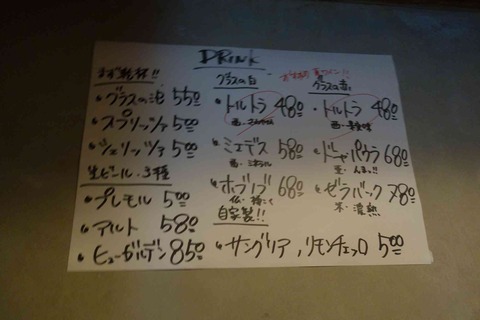 DRINK
まず乾杯!!
・グラスの泡 550
・スプリッツァ 500
・シェリッツァ 500
生ビール・3種
・プレモル 500
・アルト 580
・ヒューガルデン 850
グラスの白
・トルトラ 480
・ミェデス 580
西・ミネラル
・ボブリブ 680
自家製!!
・サングリア, リモンチェロ 500
グラスの赤
・トルトラ 480
・ドャパウラ 680
・ゼラバック 780
米・濃熟